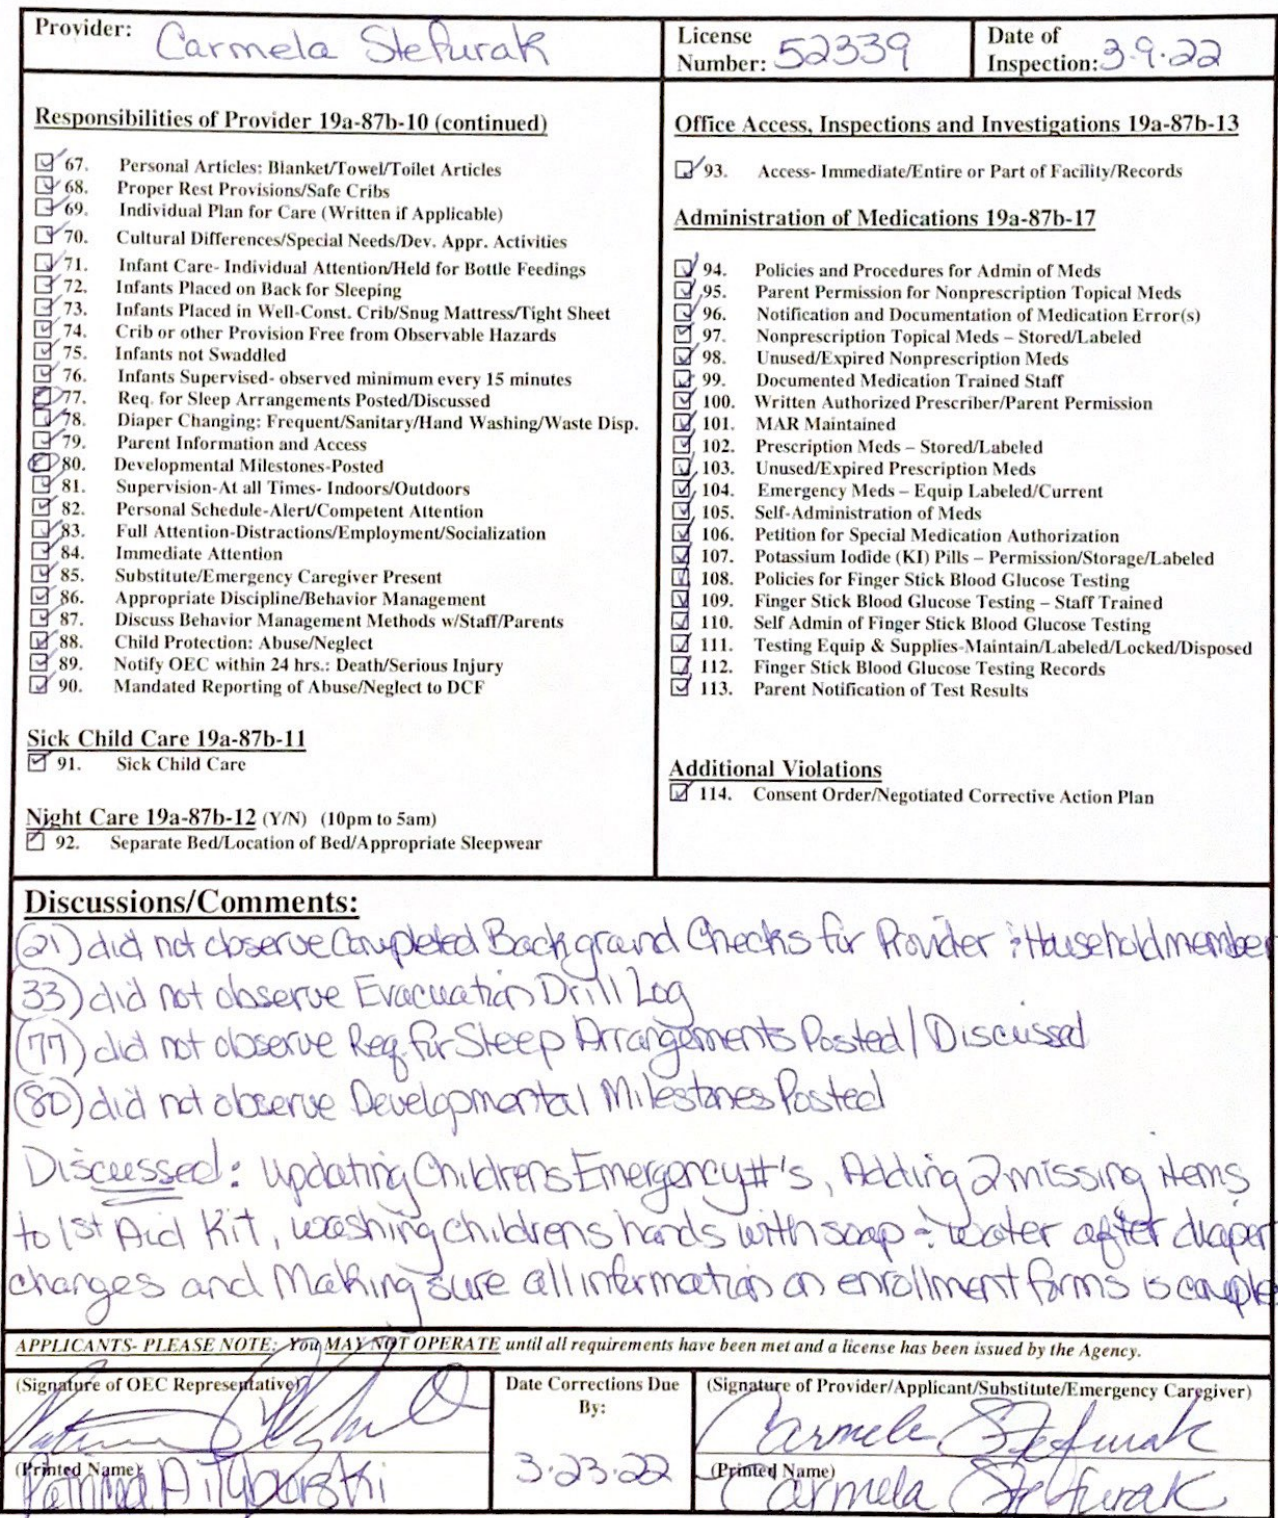 Provider: Carmela Stefurak
License Number: 52339
Date of Inspection: 3.9.22
Responsibilities of Provider 19a-87b-10 (continued)
67. Personal Articles: Blanket/Towel/Toilet Articles
68. Proper Rest Provisions/Safe Cribs
69. Individual Plan for Care (Written if Applicable)
70. Cultural Differences/Special Needs/Dev. Appr. Activities
71. Infant Care- Individual Attention/Held for Bottle Feedings
72. Infants Placed on Back for Sleeping
73. Infants Placed in Well-Const. Crib/Snug Mattress/Tight Sheet
74. Crib or other Provision Free from Observable Hazards
75. Infants not Swaddled
76. Infants Supervised- observed minimum every 15 minutes
77. Req. for Sleep Arrangements Posted/Discussed
78. Diaper Changing: Frequent/Sanitary/Hand Washing/Waste Disp.
79. Parent Information and Access
80. Developmental Milestones-Posted
81. Supervision-At all Times- Indoors/Outdoors
82. Personal Schedule-Alert/Competent Attention
83. Full Attention-Distractions/Employment/Socialization
84. Immediate Attention
85. Substitute/Emergency Caregiver Present
86. Appropriate Discipline/Behavior Management
87. Discuss Behavior Management Methods w/Staff/Parents
88. Child Protection: Abuse/Neglect
89. Notify OEC within 24 hrs.: Death/Serious Injury
90. Mandated Reporting of Abuse/Neglect to DCF
Sick Child Care 19a-87b-11
91. Sick Child Care
Night Care 19a-87b-12 (Y/N) (10pm to 5am)
92. Separate Bed/Location of Bed/Appropriate Sleepwear
Office Access, Inspections and Investigations 19a-87b-13
93. Access- Immediate/Entire or Part of Facility/Records
Administration of Medications 19a-87b-17
94. Policies and Procedures for Admin of Meds
95. Parent Permission for Nonprescription Topical Meds
96. Notification and Documentation of Medication Error(s)
97. Nonprescription Topical Meds – Stored/Labeled
98. Unused/Expired Nonprescription Meds
99. Documented Medication Trained Staff
100. Written Authorized Prescriber/Parent Permission
101. MAR Maintained
102. Prescription Meds – Stored/Labeled
103. Unused/Expired Prescription Meds
104. Emergency Meds – Equip Labeled/Current
105. Self-Administration of Meds
106. Petition for Special Medication Authorization
107. Potassium Iodide (KI) Pills – Permission/Storage/Labeled
108. Policies for Finger Stick Blood Glucose Testing
109. Finger Stick Blood Glucose Testing – Staff Trained
110. Self Admin of Finger Stick Blood Glucose Testing
111. Testing Equip & Supplies-Maintain/Labeled/Locked/Disposed
112. Finger Stick Blood Glucose Testing Records
113. Parent Notification of Test Results
Additional Violations
114. Consent Order/Negotiated Corrective Action Plan
Discussions/Comments:
(21) did not observe Completed Background Checks for Provider & Household member
(33) did not observe Evacuation Drill Log
(77) did not observe Req. for Sleep Arrangements Posted/Discussed
(80) did not observe Developmental Milestones Posted
Discussed: Updating Childrens Emergency #'s, Adding 2 missing items
to 1st Aid Kit, washing childrens hands with soap & water after diaper
changes and Making sure all information on enrollment forms is comple
APPLICANTS- PLEASE NOTE: You MAY NOT OPERATE until all requirements have been met and a license has been issued by the Agency.
(Signature of OEC Representative)
(Printed Name)
Date Corrections Due By:
3.23.22
(Signature of Provider/Applicant/Substitute/Emergency Caregiver)
Carmela Stefurak
(Printed Name)
Carmela Stefurak